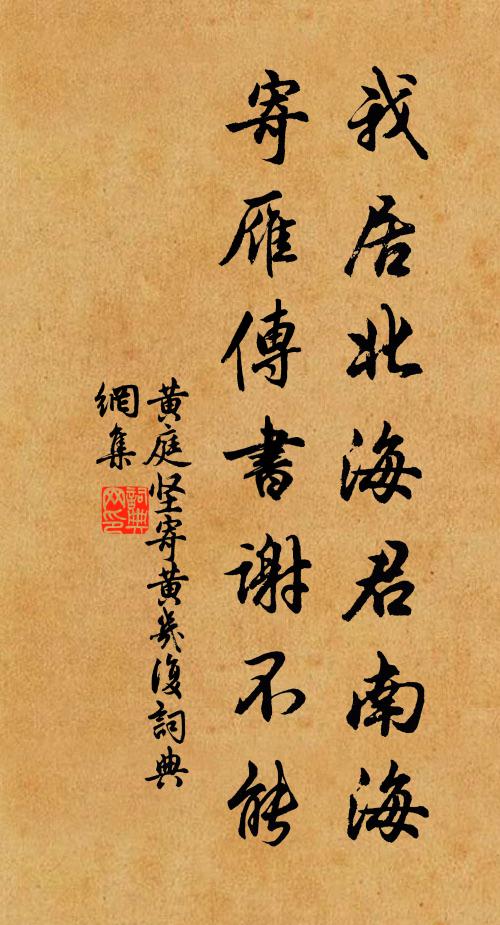 我居北海君南海
寄雁傳書謝不能
黄庭坚寄黄幾復詞典
網集
詞典
网印